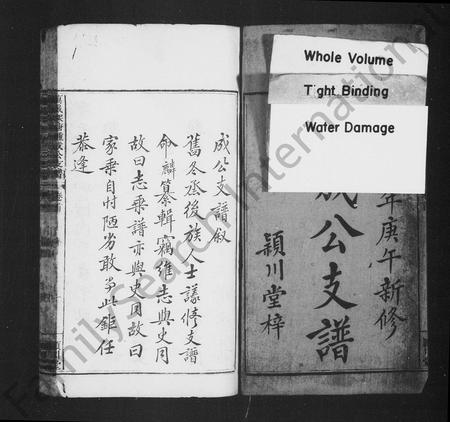 Whole Volume
Tight Binding
Water Damage
年庚午新修
成公支譜
潁川堂梓
成公支譜敘
舊冬丞後族人士議修支譜
命麟纂輯竊維志與史同
故曰志乘譜亦與史同故曰
家乘自忖陋劣敢當此鉅任
恭逢
1
FamilySearch International